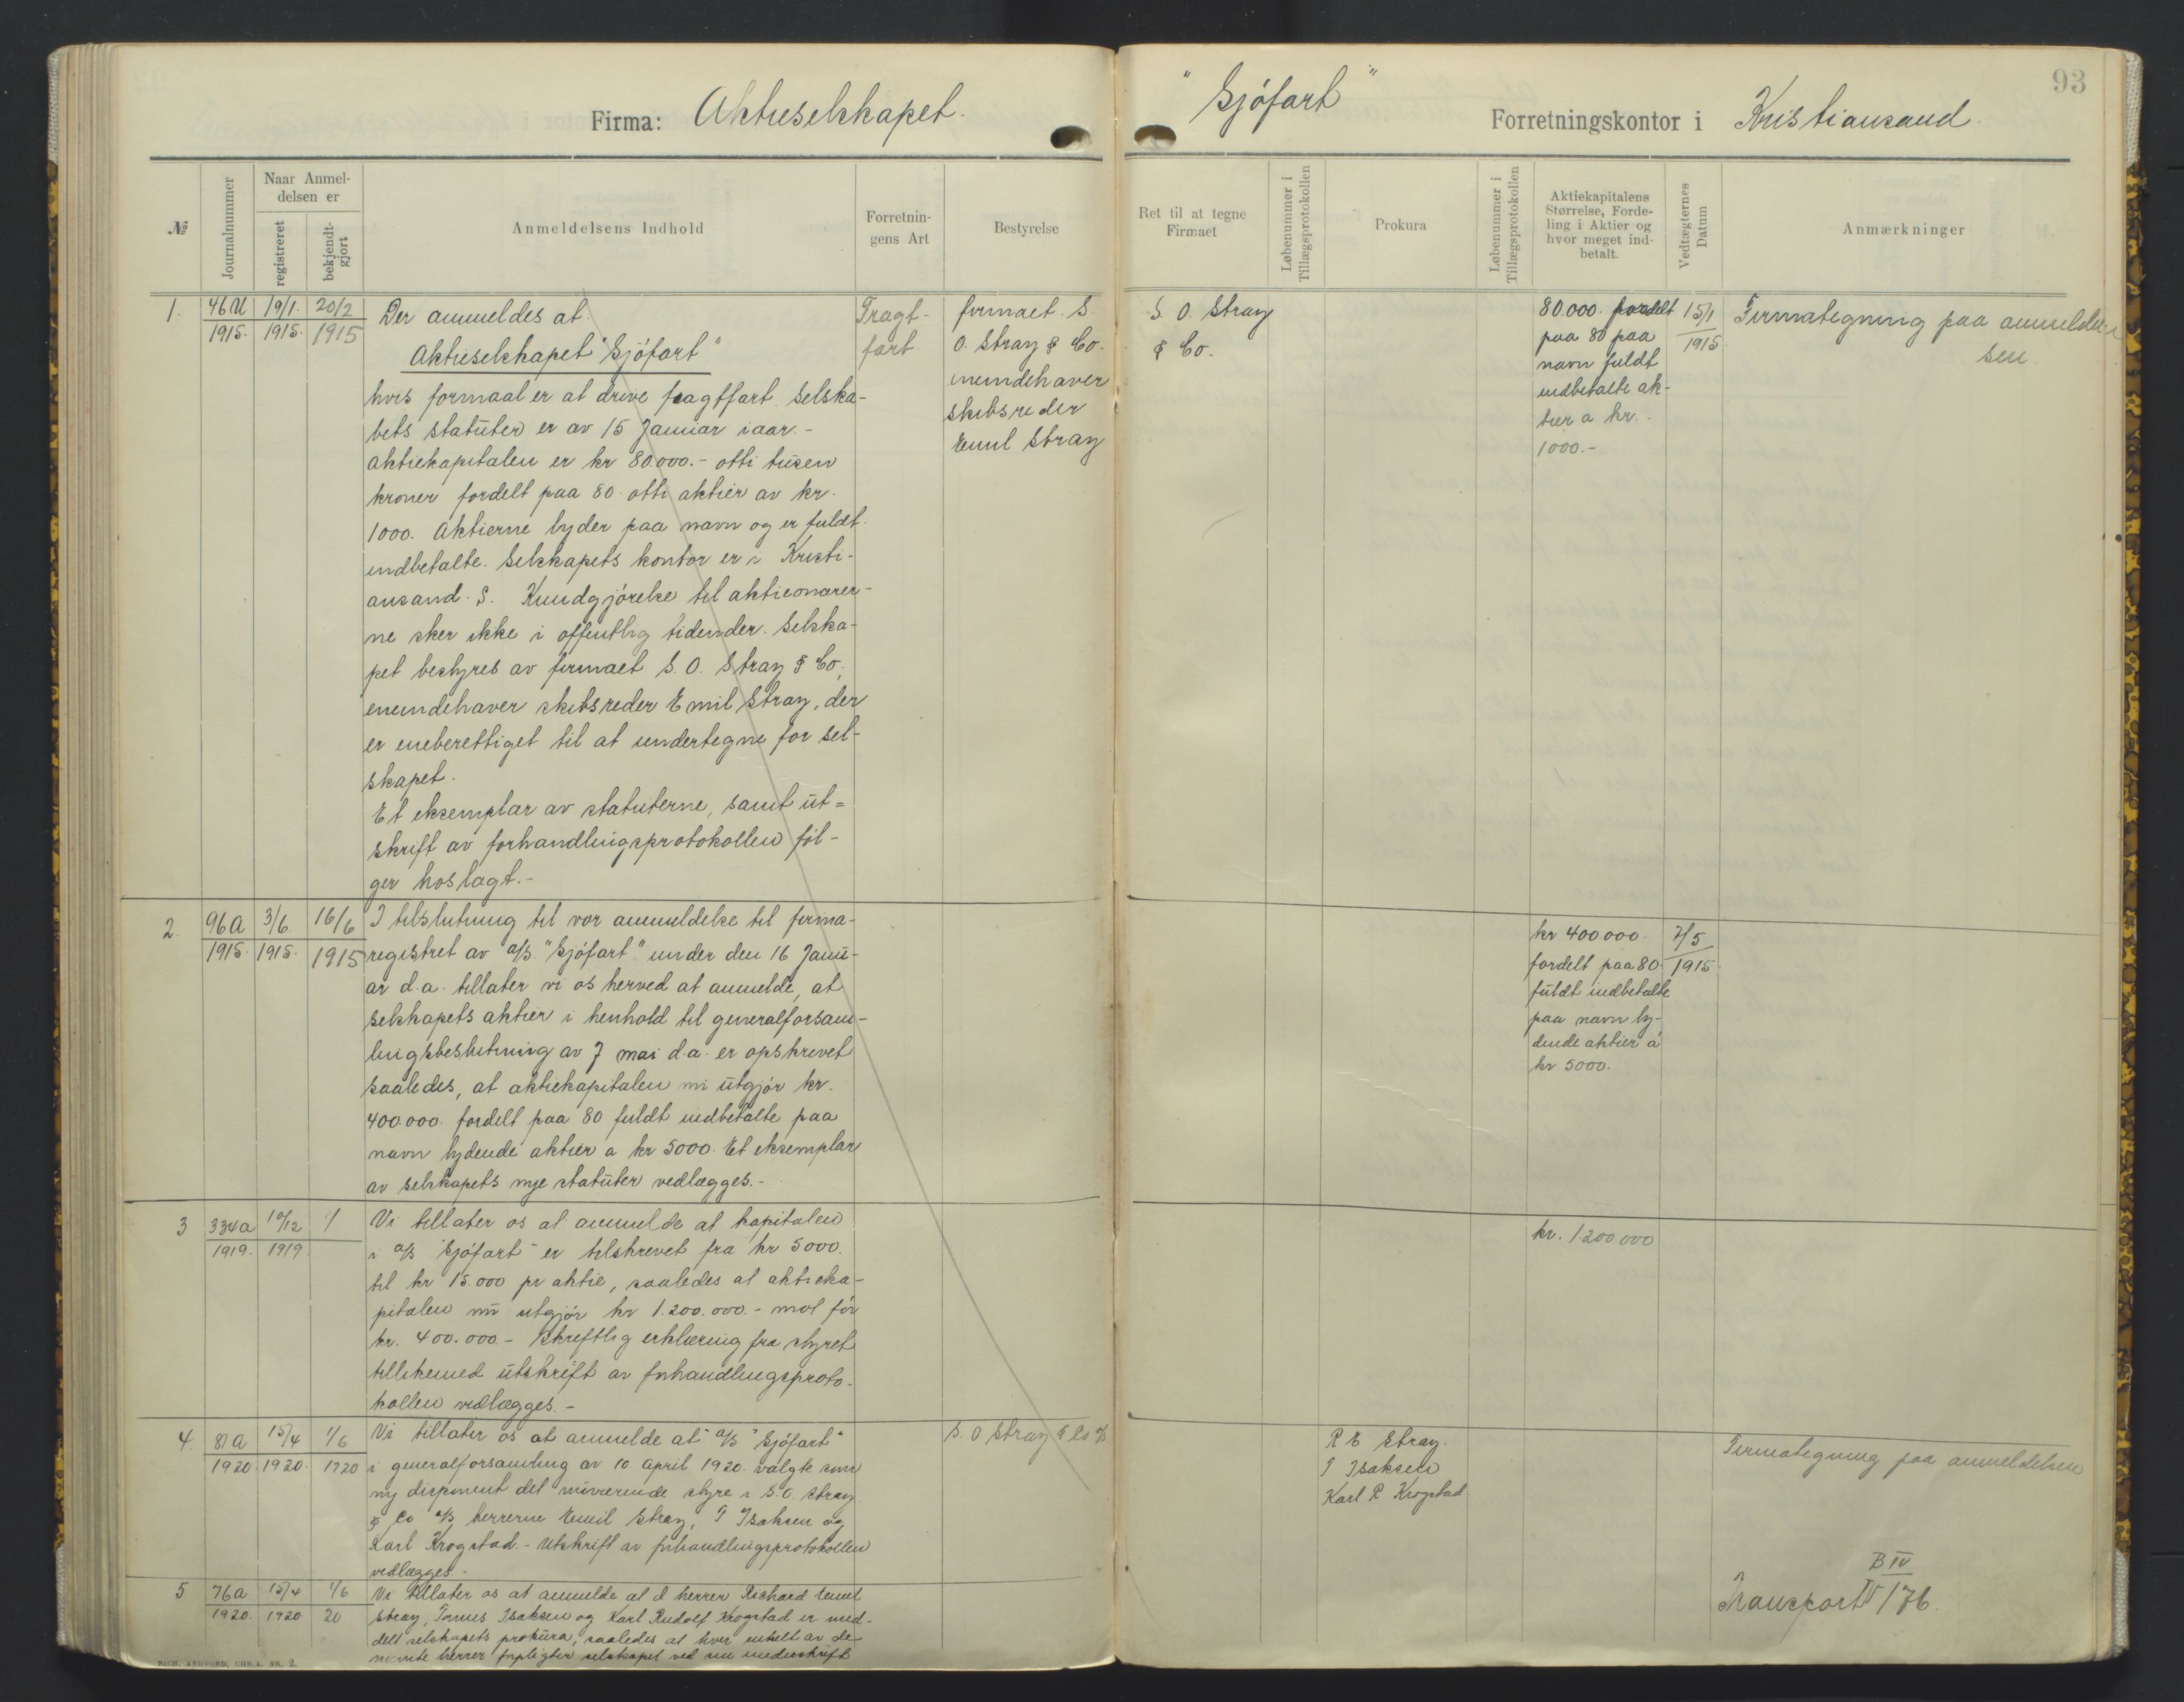 93
Firma: Aktieselskapet "Sjöfart" Forretningskontor i Kristiansand.
№
Journalnummer
Naar Anmel-
delsen er
registreret
bekjendt-
gjort
Anmeldelsens Indhold
Forretnin-
gens Art
Bestyrelse
Ret til at tegne
Firmaet
Løbenummer i
Tillægsprotokollen
Prokura
Løbenummer i
Tillægsprotokollen
Aktiekapitalens
Størrelse, Forde-
ling i Aktier og
hvor meget ind-
betalt.
Vedtægternes
Datum
Anmærkninger
1.
1915.
19/1
1915.
20/2
1915
Der anmeldes at
Aktieselskapet "Sjöfart"
hvis formaal er at drive fragtfart. Selska-
bets statuter er av 15 Januar iaar.-
Aktiekapitalen er kr 80.000.- otti tusen
kroner fordelt paa 80 otti aktier av kr.
1000. Aktierne lyder paa navn og er fuldt
indbetalte. Selskapets kontor er i Kristi-
ansand. S. Kundgjörelse til aktionærer-
ne sker ikke i offentlig tidender. Selska-
pet bestyres av firmaet S. O. Stray & Co.;
eneindehaver skibsreder Emil Stray, der
er eneberettiget til at undertegne for sel-
skapet.
Et eksemplar av statuterne, samt ut=
skrift av forhandlingsprotokollen föl-
ger hoslagt.-
Fragt-
fart
firmaet S.
O. Stray & Co.
eneindehaver
skibsreder
Emil Stray
S. O. Stray
& Co.
80.000. fordelt
paa 80 paa
navn fuldt
indbetalte ak-
tier a kr.
1000.-
15/1
1915
Firmategning paa anmeldel
sen
2.
96a
1915.
3/6
1915.
16/6
1915
I tilslutning til vor anmeldelse til firma-
registret av a/s "Sjöfart" under den 16 Janu-
ar d.a. tillater vi os herved at anmelde, at
selskapets aktier i henhold til generalforsam-
lingsbeslutning av 7 mai d.a. er opskrevet
saaledes, at aktiekapitalen nu utgjör kr.
400.000. fordelt paa 80 fuldt indbetalte paa
navn lydende aktier a kr 5000. Et eksemplar
av selskapets nye statuter vedlægges.-
kr 400.000.
fordelt paa 80
fuldt indbetalte
paa navn ly-
dende aktier á
kr 5000.
7/5
1915.
3
334a
1919.
10/12
1919.
Vi tillater os at anmelde at kapitalen
i a/s "Sjöfart" er tilskrevet fra kr 5000.
til kr 15.000 pr aktie, saaledes at aktieka-
pitalen nu utgjör kr 1.200.000.- mot för
kr. 400.000.- Skriftlig erklæring fra styret
tillikemed utskrift av forhandlingsproto-
kollen vedlægges.-
kr. 1200000
4.
81a
1920.
15/4
1920.
1/6
1920
Vi tillater os at anmelde at a/s "Sjöfart"
i generalforsamling av 10 April 1920. valgte som
ny disponent det nuværende styre i S.O. Stray
& Co a/s herrerne Emil Stray, T Isaksen og
Karl Krogstad.- Utskrift av forhandlingsprotokollen
vedlægges-
S. O Stray & Co a/s
R E Stray.
T Isaksen
Karl R Krogstad
Firmategning paa anmeldelsen
5
76a
1920.
15/4
1920
1/6
20
Vi tillater os at anmelde at d herrer Richard Emil
Stray, Tomes Isaksen og Karl Rudolf Krogstad er med-
delt selskapets prokura, saaledes at hver enkelt av de
nævnte herrer forpligter selskapet ved sin underskrift
B IV
Transport 176.
RICH. ANDVORD, CHR.A. NR. 2.